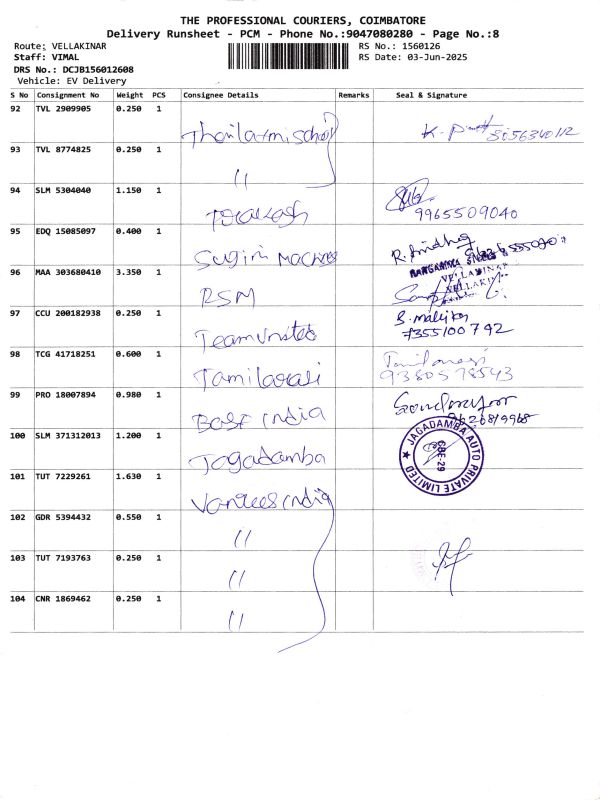 THE PROFESSIONAL COURIERS, COIMBATORE
Delivery Runsheet - PCM - Phone No.:9047080280 - Page No.:8
Route: VELLAKINAR
RS No.: 1560126
Staff: VIMAL
RS Date: 03-Jun-2025
DRS No.: DCJB156012608
Vehicle: EV Delivery
S No Consignment No Weight PCS Consignee Details Remarks Seal & Signature
92 TVL 2909905 0.250 1
93 TVL 8774825 0.250 1 "
94 SLM 5304040 1.150 1 Prakash 9965509040
95 EDQ 15085097 0.400 1 Sugiri Machines
96 MAA 303680410 3.350 1 RSM VELLAKINAR
97 CCU 200182938 0.250 1 7355100742
98 TCG 41718251 0.600 1 Tamilarasi Tamilarasi 9380578543
99 PRO 18007894 0.980 1 Best India
100 SLM 371312013 1.200 1 Jagadamba JAGADAMBA AUTO PRIVATE LIMITED CBE-29
101 TUT 7229261 1.630 1 India
102 GDR 5394432 0.550 1 "
103 TUT 7193763 0.250 1 "
104 CNR 1869462 0.250 1 "